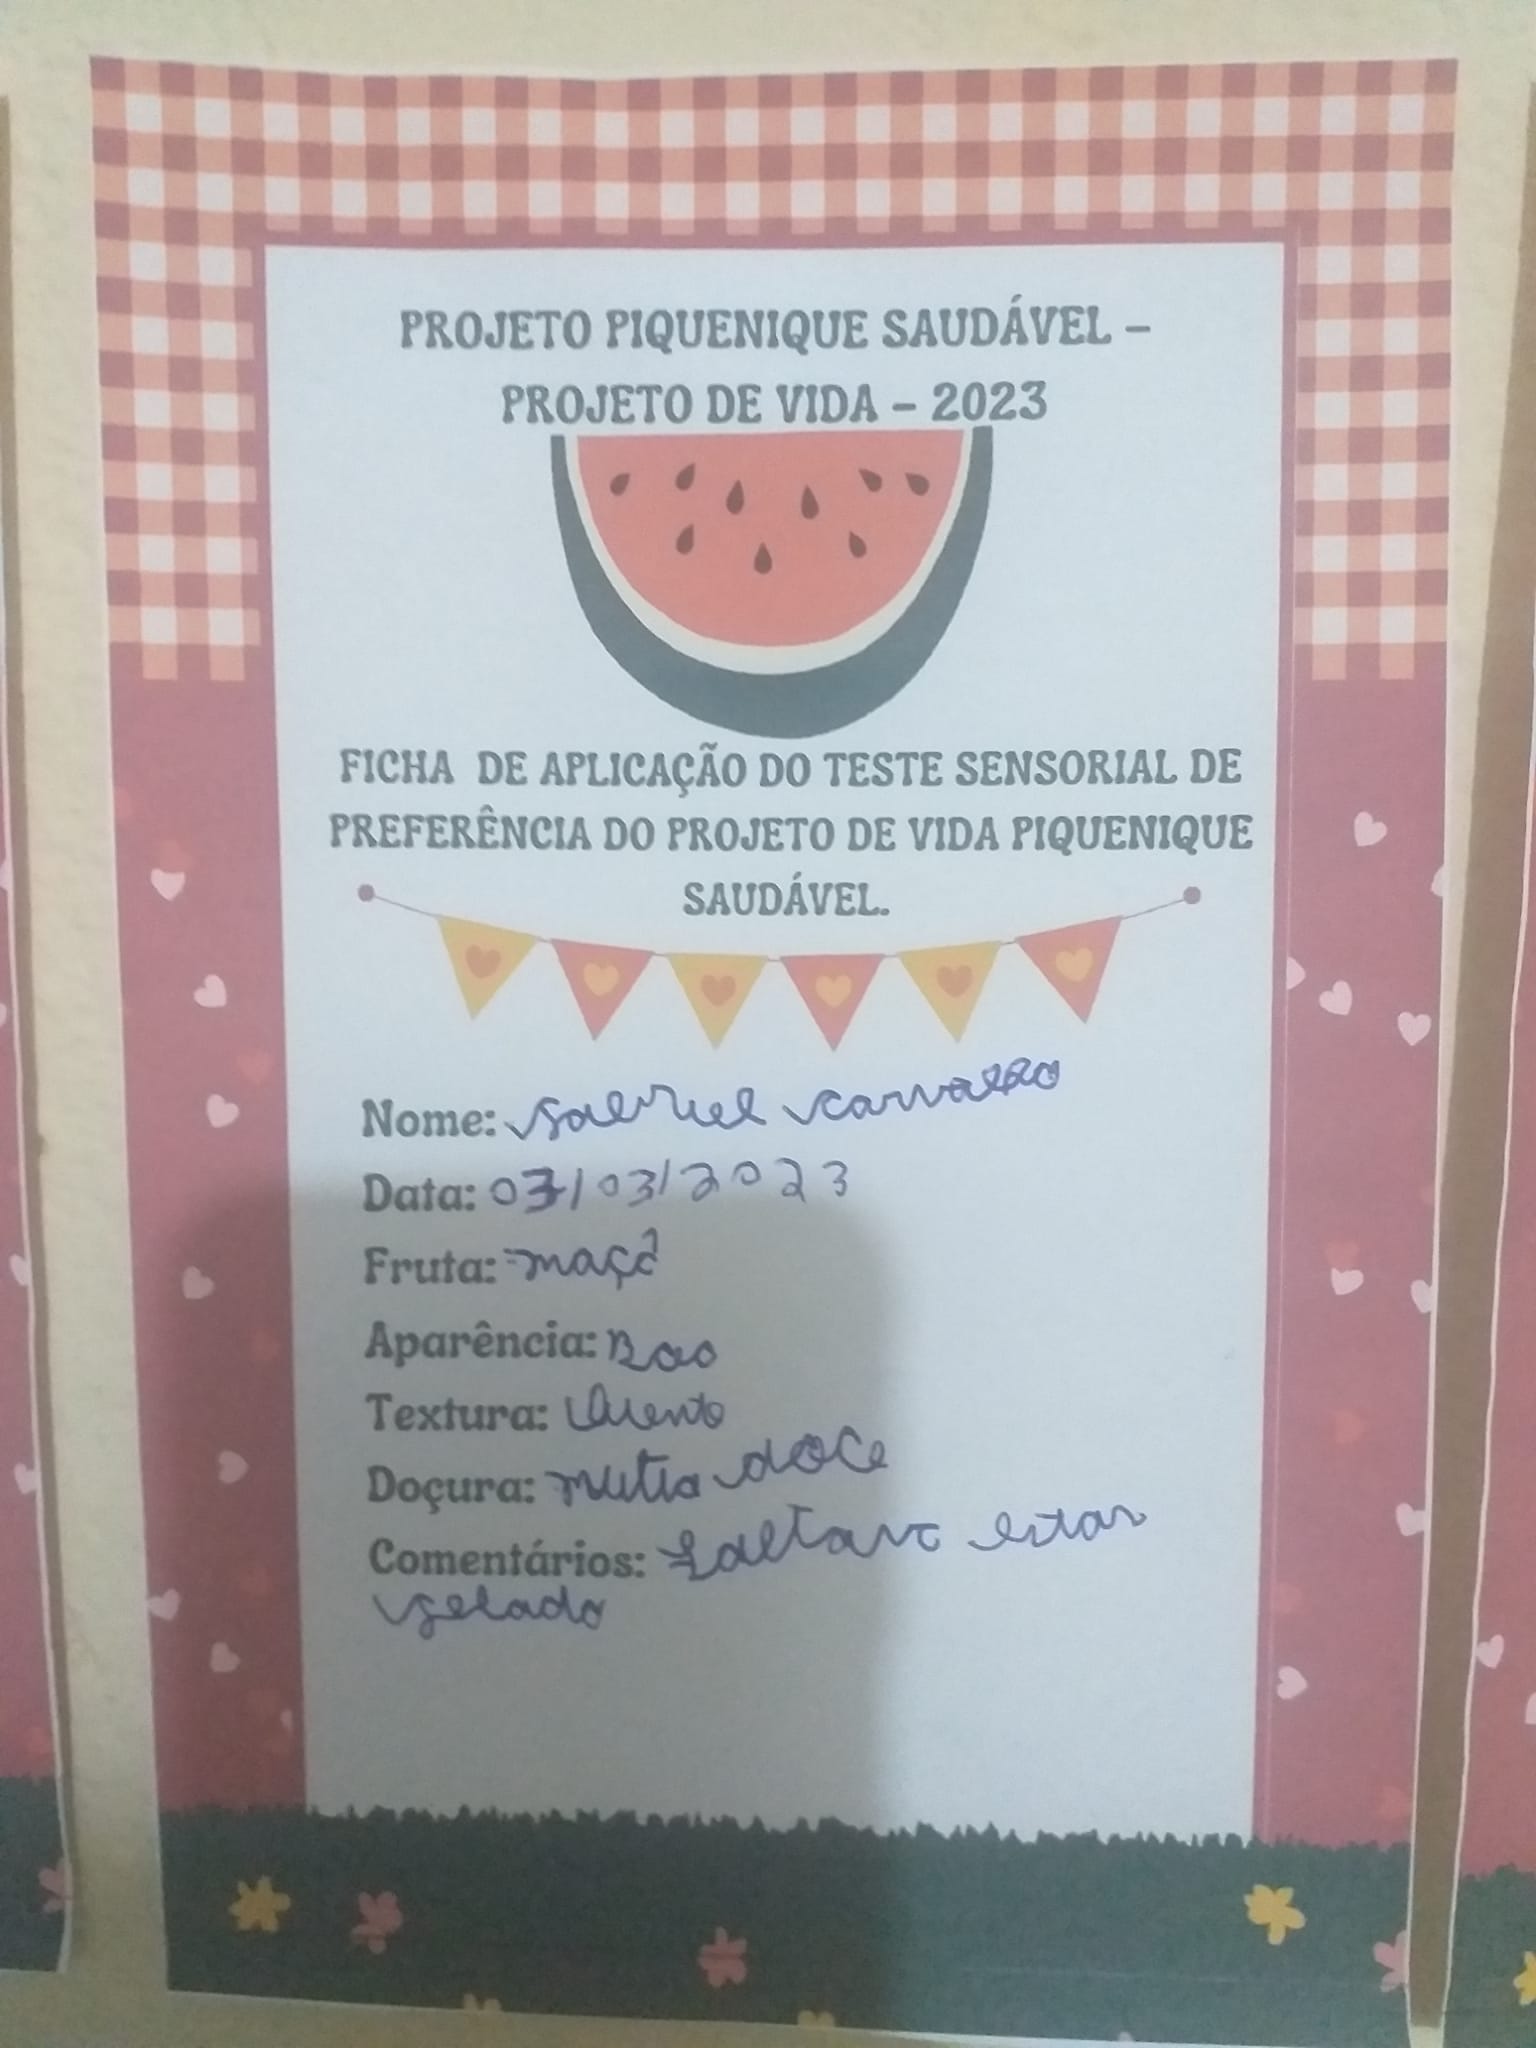 PROJETO PIQUENIQUE SAUDÁVEL –
PROJETO DE VIDA – 2023
FICHA DE APLICAÇÃO DO TESTE SENSORIAL DE
PREFERÊNCIA DO PROJETO DE VIDA PIQUENIQUE
SAUDÁVEL.
Nome: Gabriel Carvalho
Data: 03/03/2023
Fruta: maçã
Aparência: Boa
Textura:
Doçura: muito doce
Comentários: faltava estar
gelado